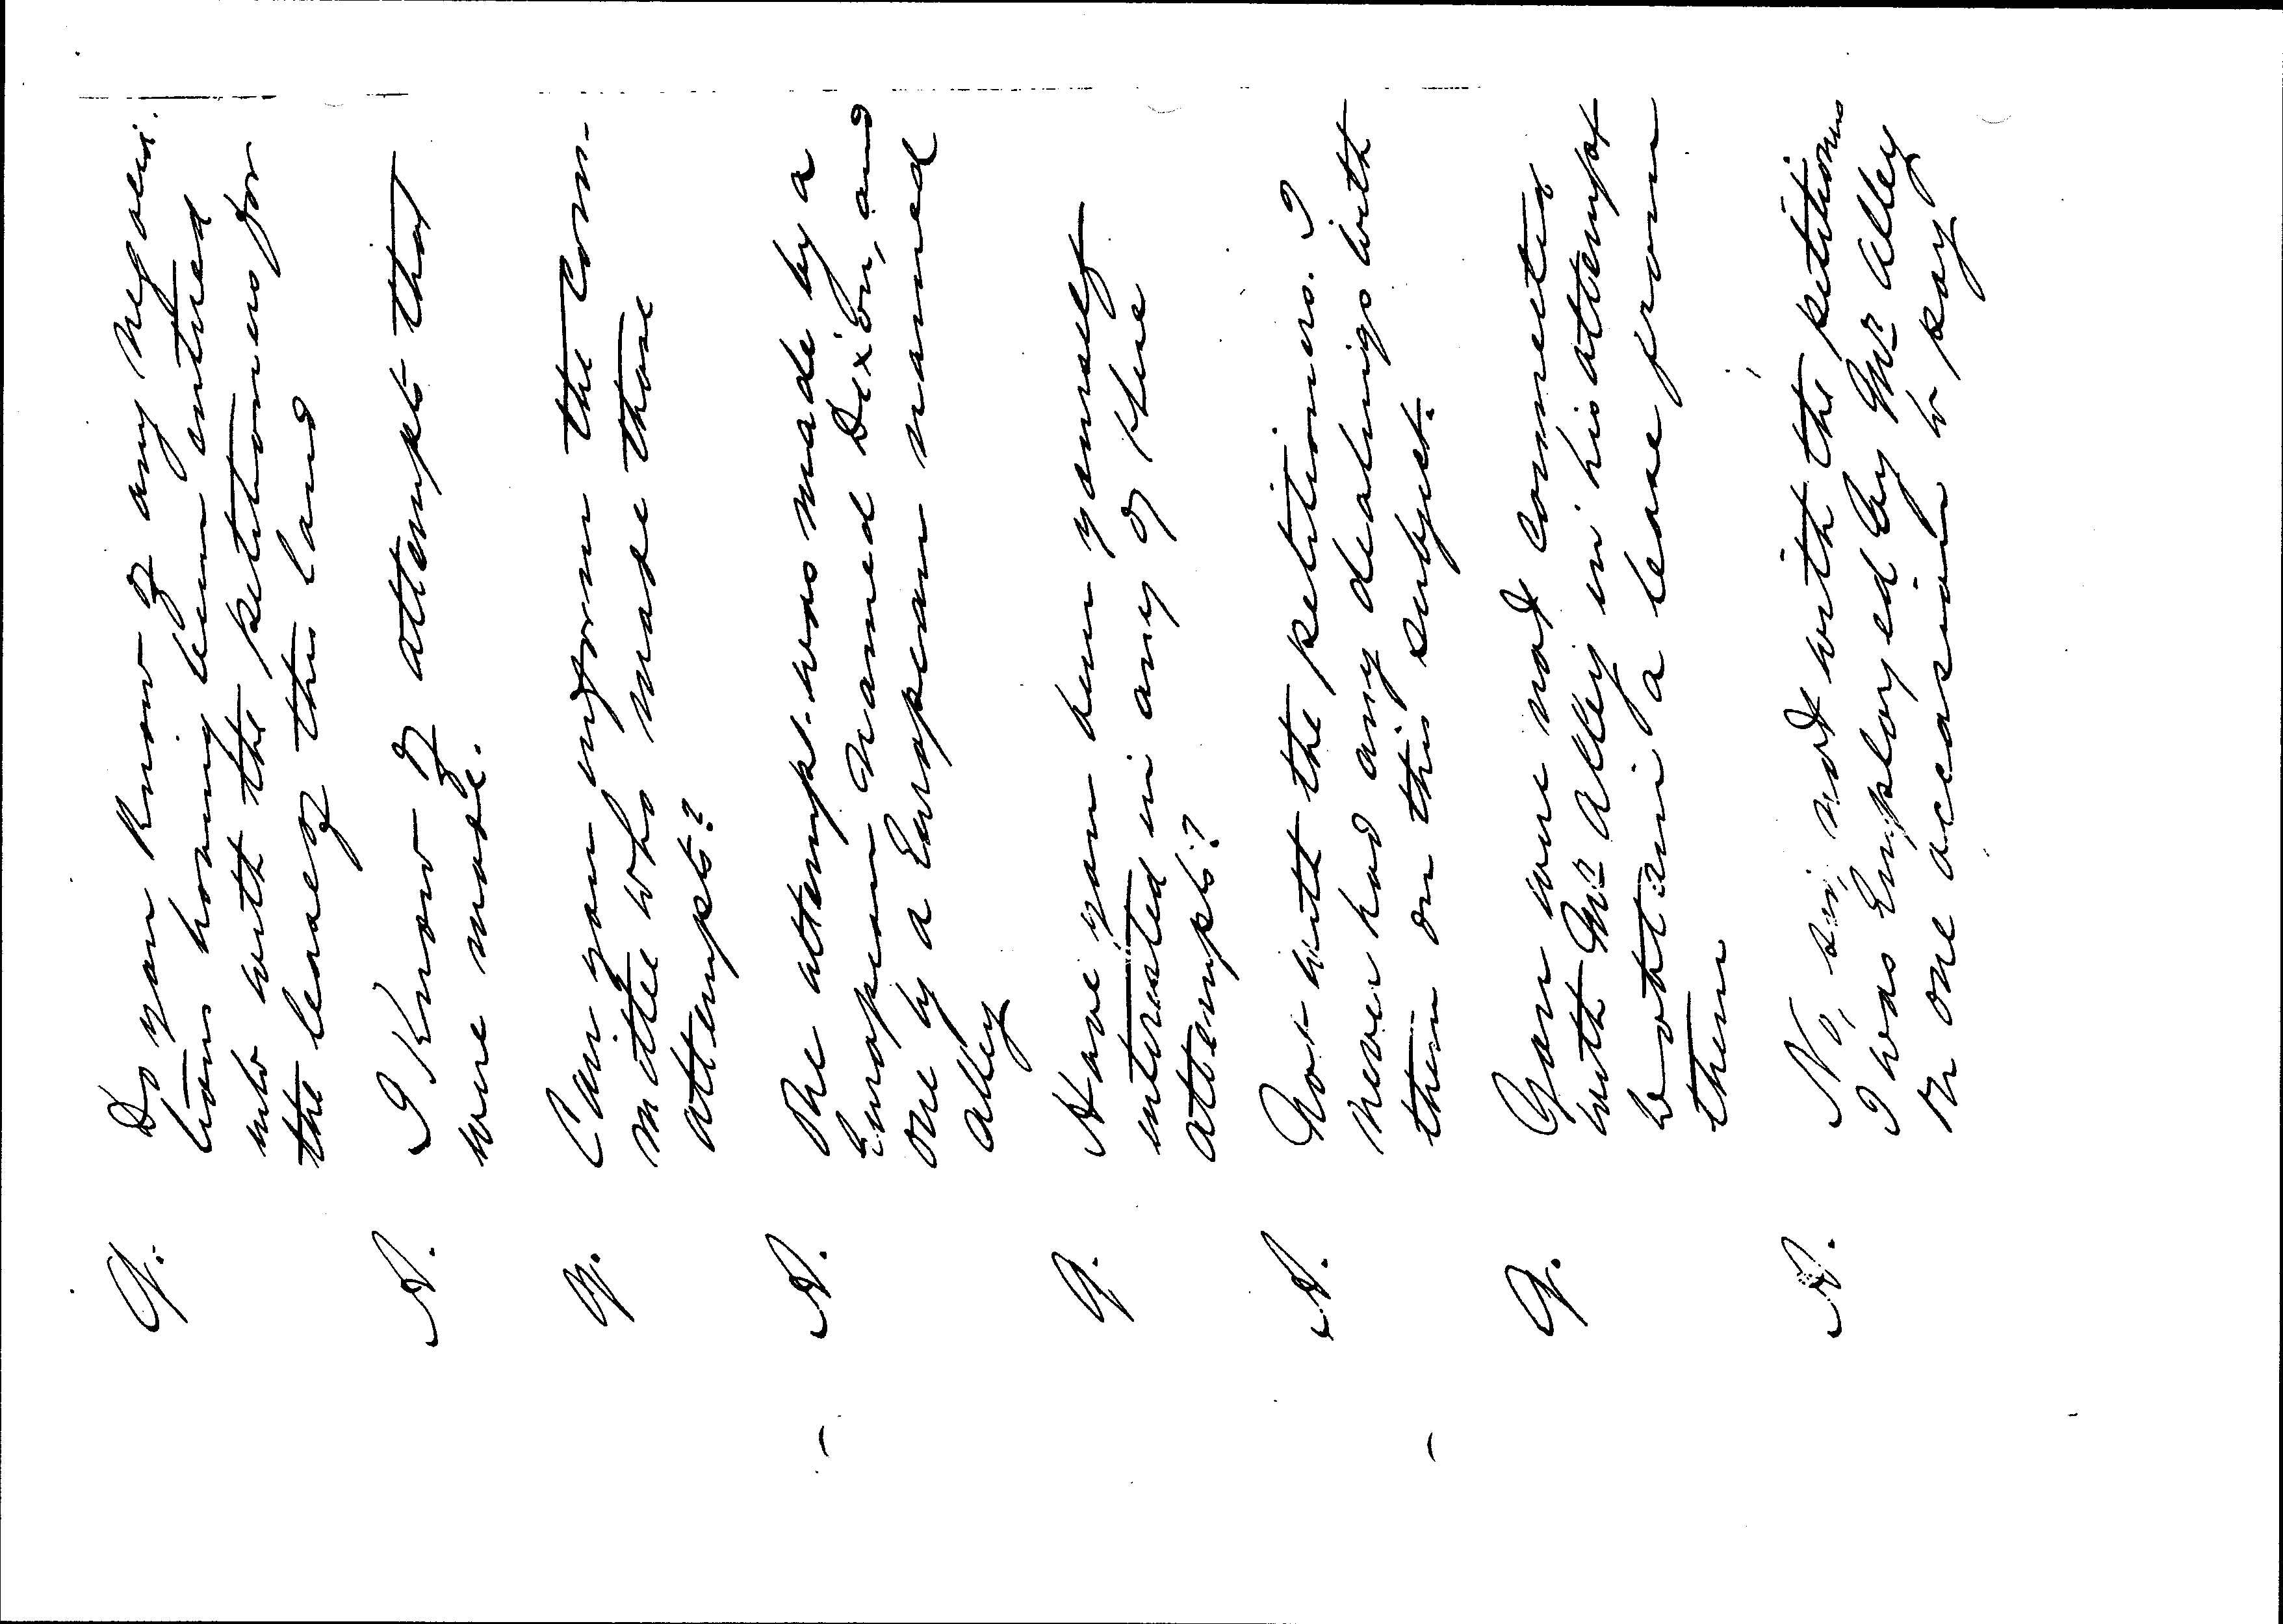 Q. Do you know of any negocia-
tions having been entered
into with the petitioners for
the lease of this land
A. I know of attempts that
were made.
Q. Can you inform the Com-
mittee who made those
attempts?
A. One attempt was made by a
European named Dixon, and
one by a European named
Alley
Q. Have you been yourself
interested in any of the
attempts?
A. Not with the petitioners. I
never had any dealings with
them on this subject.
Q. You were not connected
with Mr Alley in his attempt
to obtain a lease from
them
A. No, sir, not with the petitioners
I was Employed by Mr Alley
on one occasion to pay